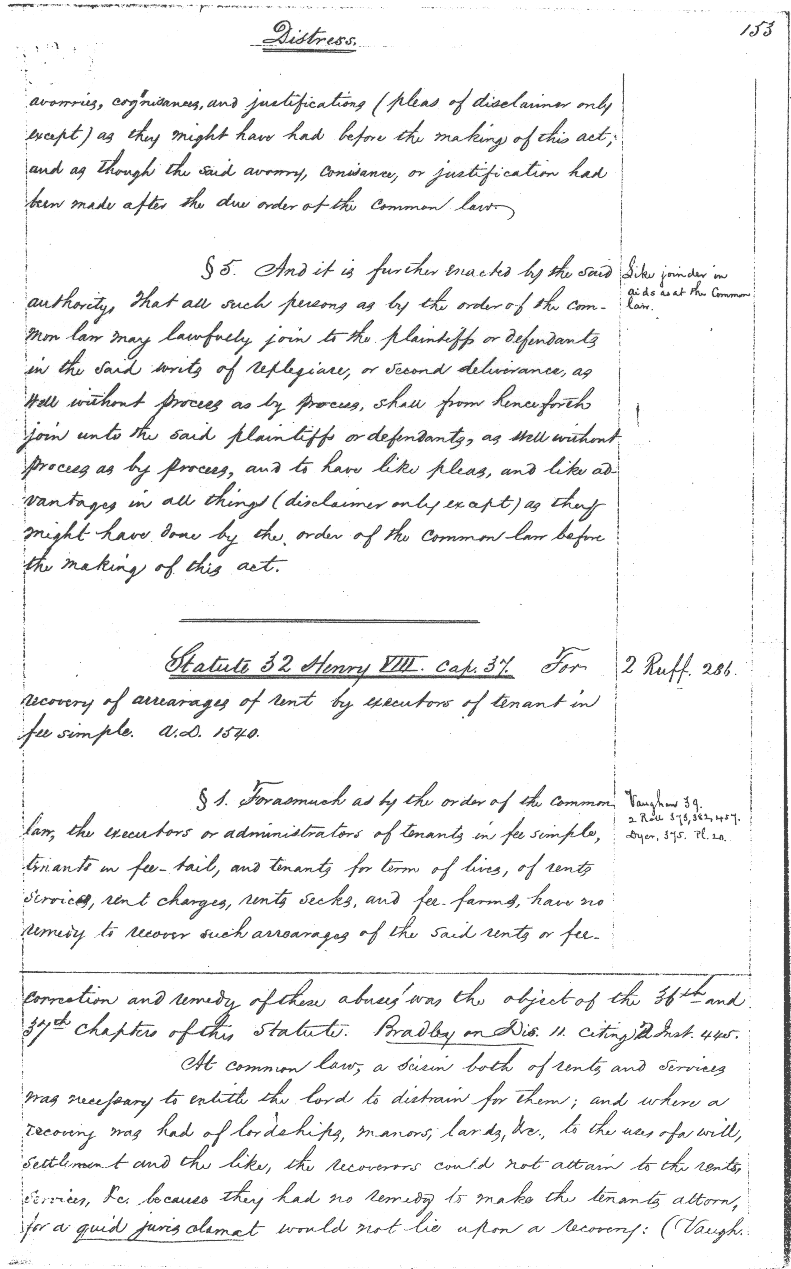 153
Distress.
avowries, cognisances, and justifications (pleas of disclaimer only
except) as they might have had before the making of this act;
and as though the said avowry, conisance, or justification had
been made after the due order of the common law.
§ 5. And it is further enacted by the said
authority, That all such persons as by the order of the com-
mon law may lawfully join to the plaintiffs or defendants
in the said writs of replegiare, or second deliverance, as
well without process as by process, shall from henceforth
join unto the said plaintiffs or defendants, as well without
process as by process, and to have like pleas, and like ad-
vantages in all things (disclaimer only except) as they
might have done by the order of the common law before
the making of this act.
Like joinder in
aids as at the Common
law.
Statute 32 Henry VIII. cap. 37. For
recovery of arrearages of rent by executors of tenant in
fee simple. A.D. 1540.
2 Ruff. 286.
§ 1. Forasmuch as by the order of the common
law, the executors or administrators of tenants in fee simple,
tenants in fee-tail, and tenants for term of lives, of rents
services, rent charges, rents secks, and fee-farms, have no
remedy to recover such arrearages of the said rents or fee-
Vaughan 39.
2 Roll 373, 382, 457.
Dyer, 375. Pl. 20.
correction and remedy of these abuses was the object of the 36th and
37th chapters of this Statute. Bradley on Dis. 11. citing 2 Inst. 445.
At common law, a seisin both of rents and services
was necessary to entitle the lord to distrain for them; and where a
recovery was had of lordships, manors, lands, &c., to the uses of a will,
settlement and the like, the recoverors could not attain to the rents,
services, &c. because they had no remedy to make the tenants attorn,
for a quid juris clamat would not lie upon a recovery: (Vaugh.